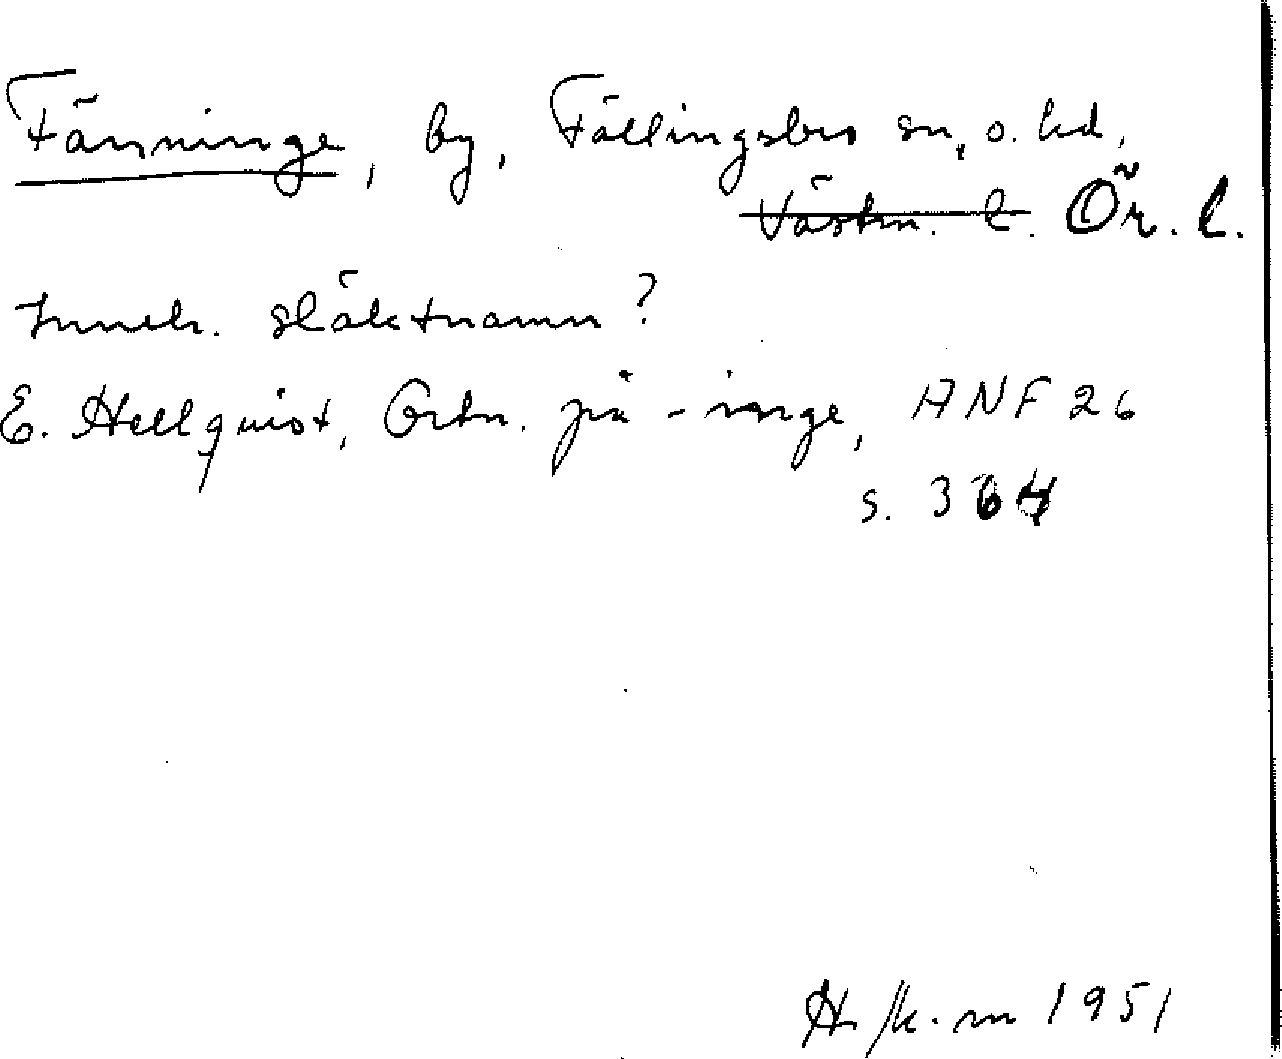 Fänninge, by, Fällingsbro sn, o. hd,
Västm. l. Ör. l.
Inneh. släktnamn?
E. Hellquist, Ortn. på -inge, ANF 26
s. 364
1951